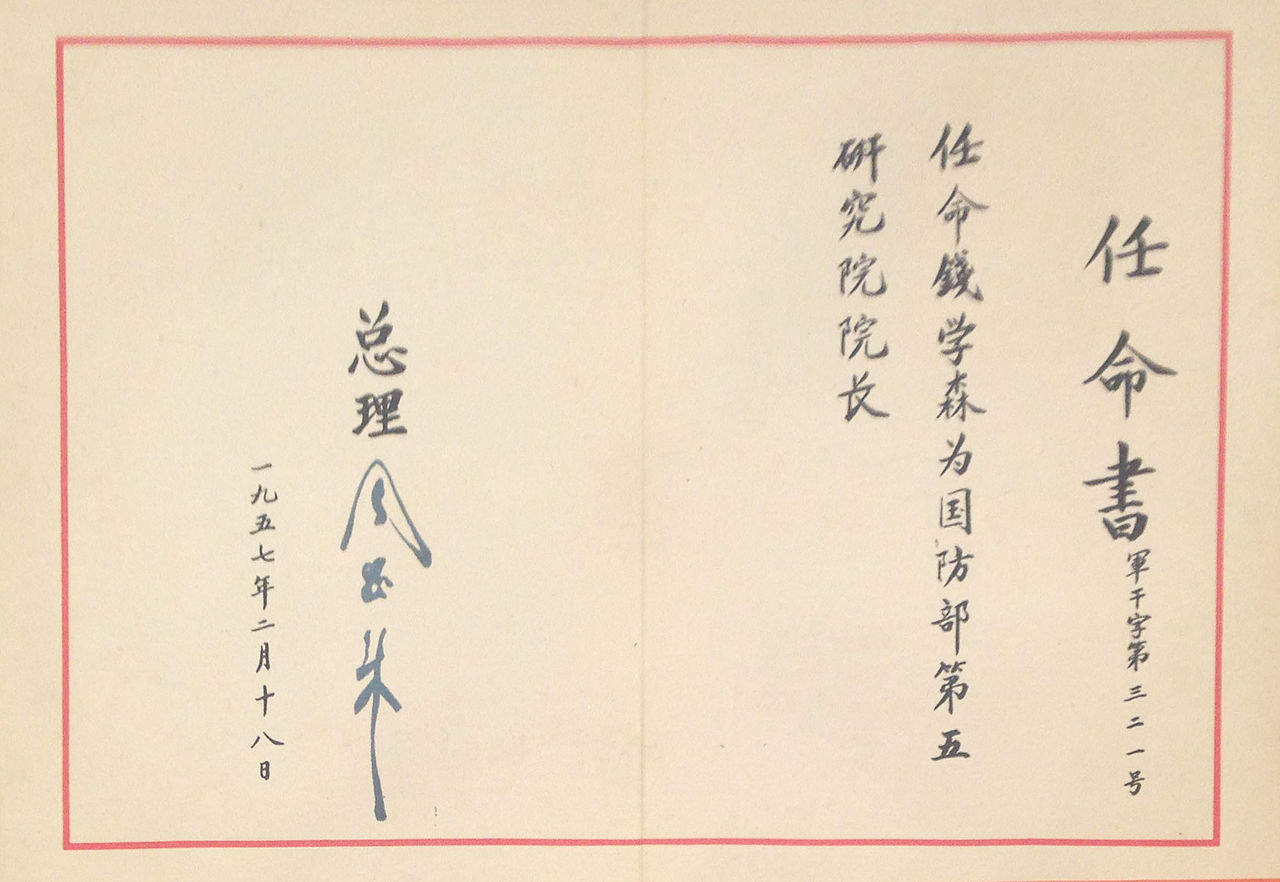 任命書 軍干字第三二一号
任命錢学森为国防部第五
研究院院长
总理 周恩来
一九五七年二月十八日